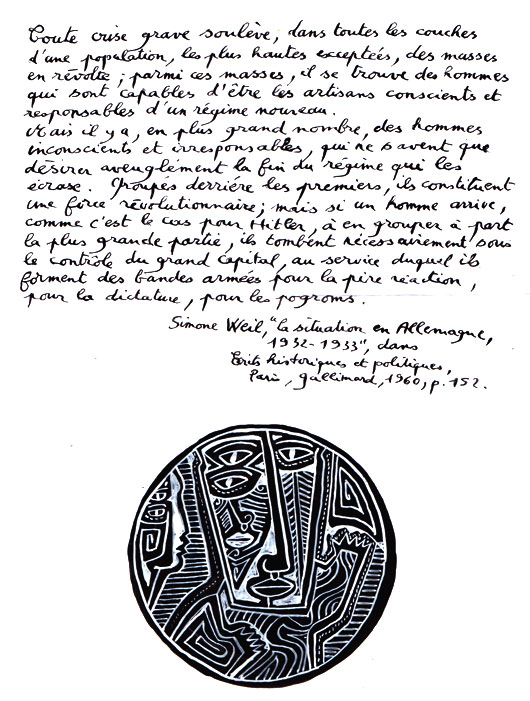 Toute crise grave soulève, dans toutes les couches
d'une population, les plus hautes exceptées, des masses
en révolte ; parmi ces masses, il se trouve des hommes
qui sont capables d'être les artisans conscients et
responsables d'un régime nouveau.
Mais il y a, en plus grand nombre, des hommes
inconscients et irresponsables, qui ne savent que
désirer aveuglément la fin du régime qui les
écrase. Groupés derrière les premiers, ils constituent
une force révolutionnaire ; mais si un homme arrive,
comme c'est le cas pour Hitler, à en grouper à part
la plus grande partie, ils tombent nécessairement sous
le contrôle du grand capital, au service duquel ils
forment des bandes armées pour la pire réaction,
pour la dictature, pour les pogroms.
Simone Weil, "la situation en Allemagne,
1932-1933", dans
Ecrits historiques et politiques,
Paris, Gallimard, 1960, p. 152.